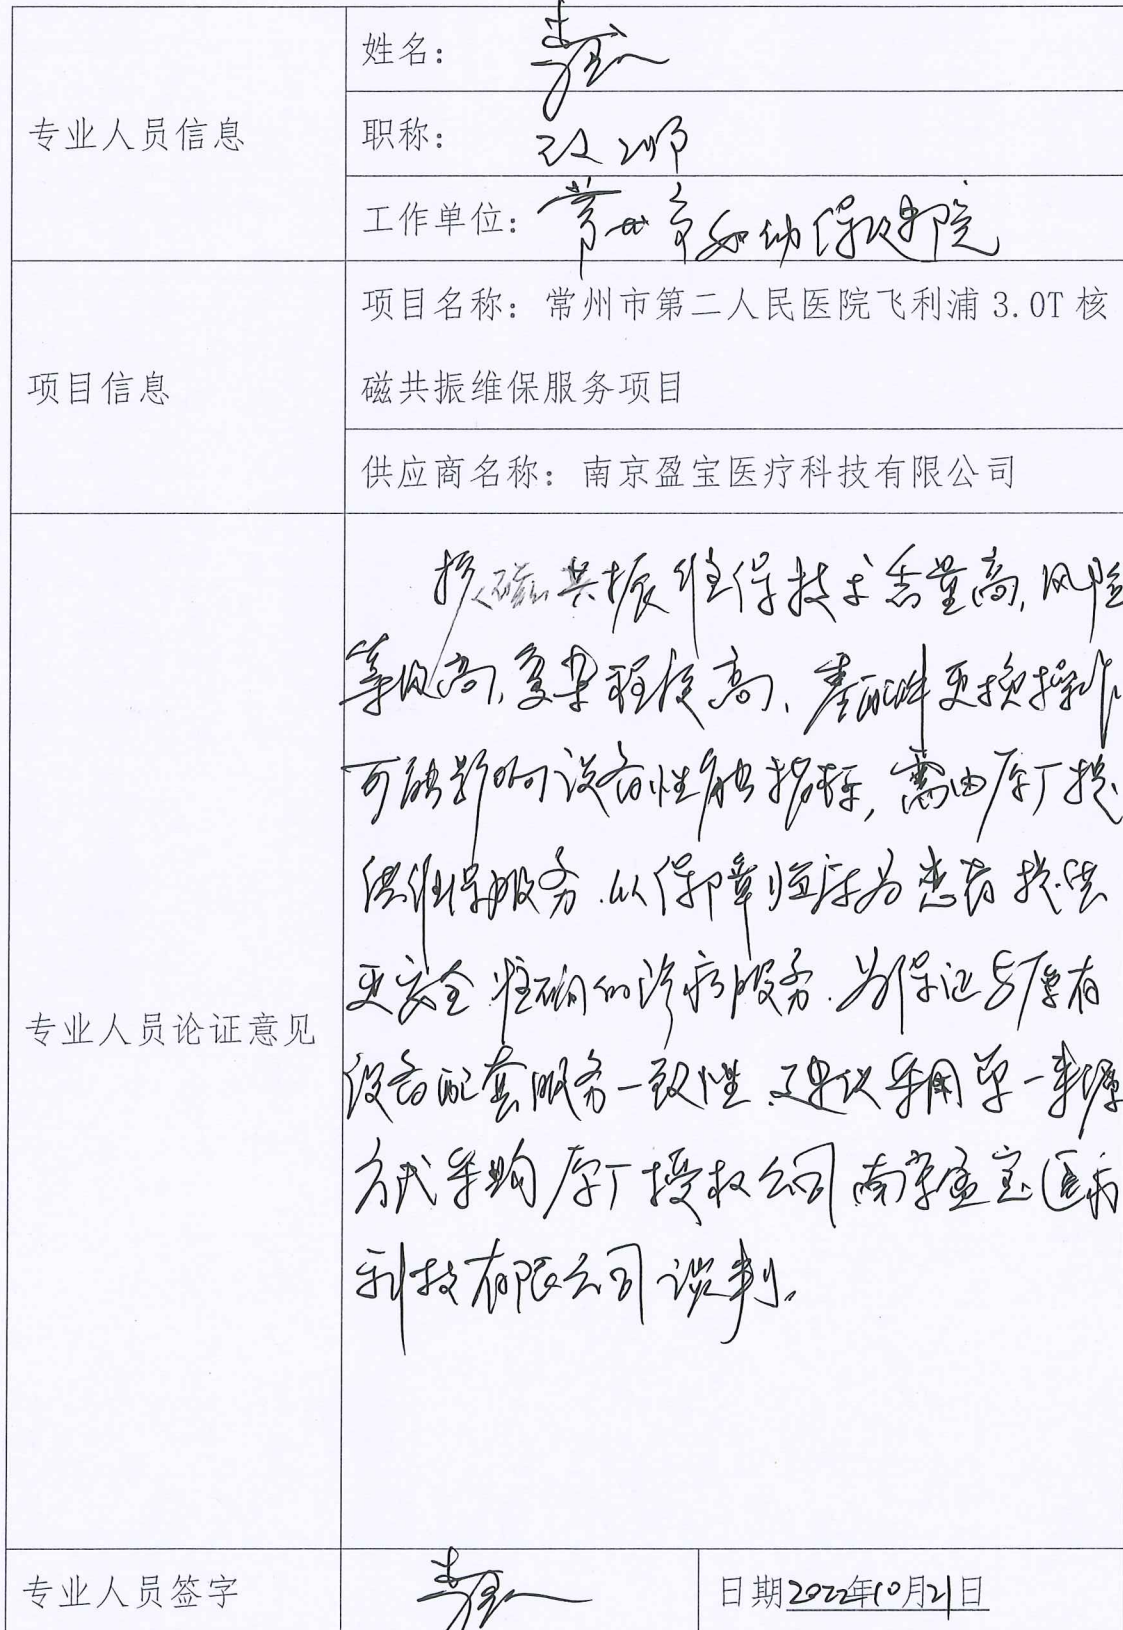 专业人员信息
姓名：
职称：
工作单位：常州市妇幼保健院
项目信息
项目名称：常州市第二人民医院飞利浦 3.0T 核
磁共振维保服务项目
供应商名称：南京盈宝医疗科技有限公司
专业人员论证意见
核磁共振维保技术含量高，风险
等级高、复杂程度高、零配件更换操作
可能影响设备性能指标，需由原厂提
供维保服务，以保障临床为患者提供
更安全准确的诊疗服务，为保证与原有
设备配套服务一致性，建议采用单一来源
方式采购原厂授权公司南京盈宝医疗
科技有限公司谈判。
专业人员签字
日期2022年10月21日